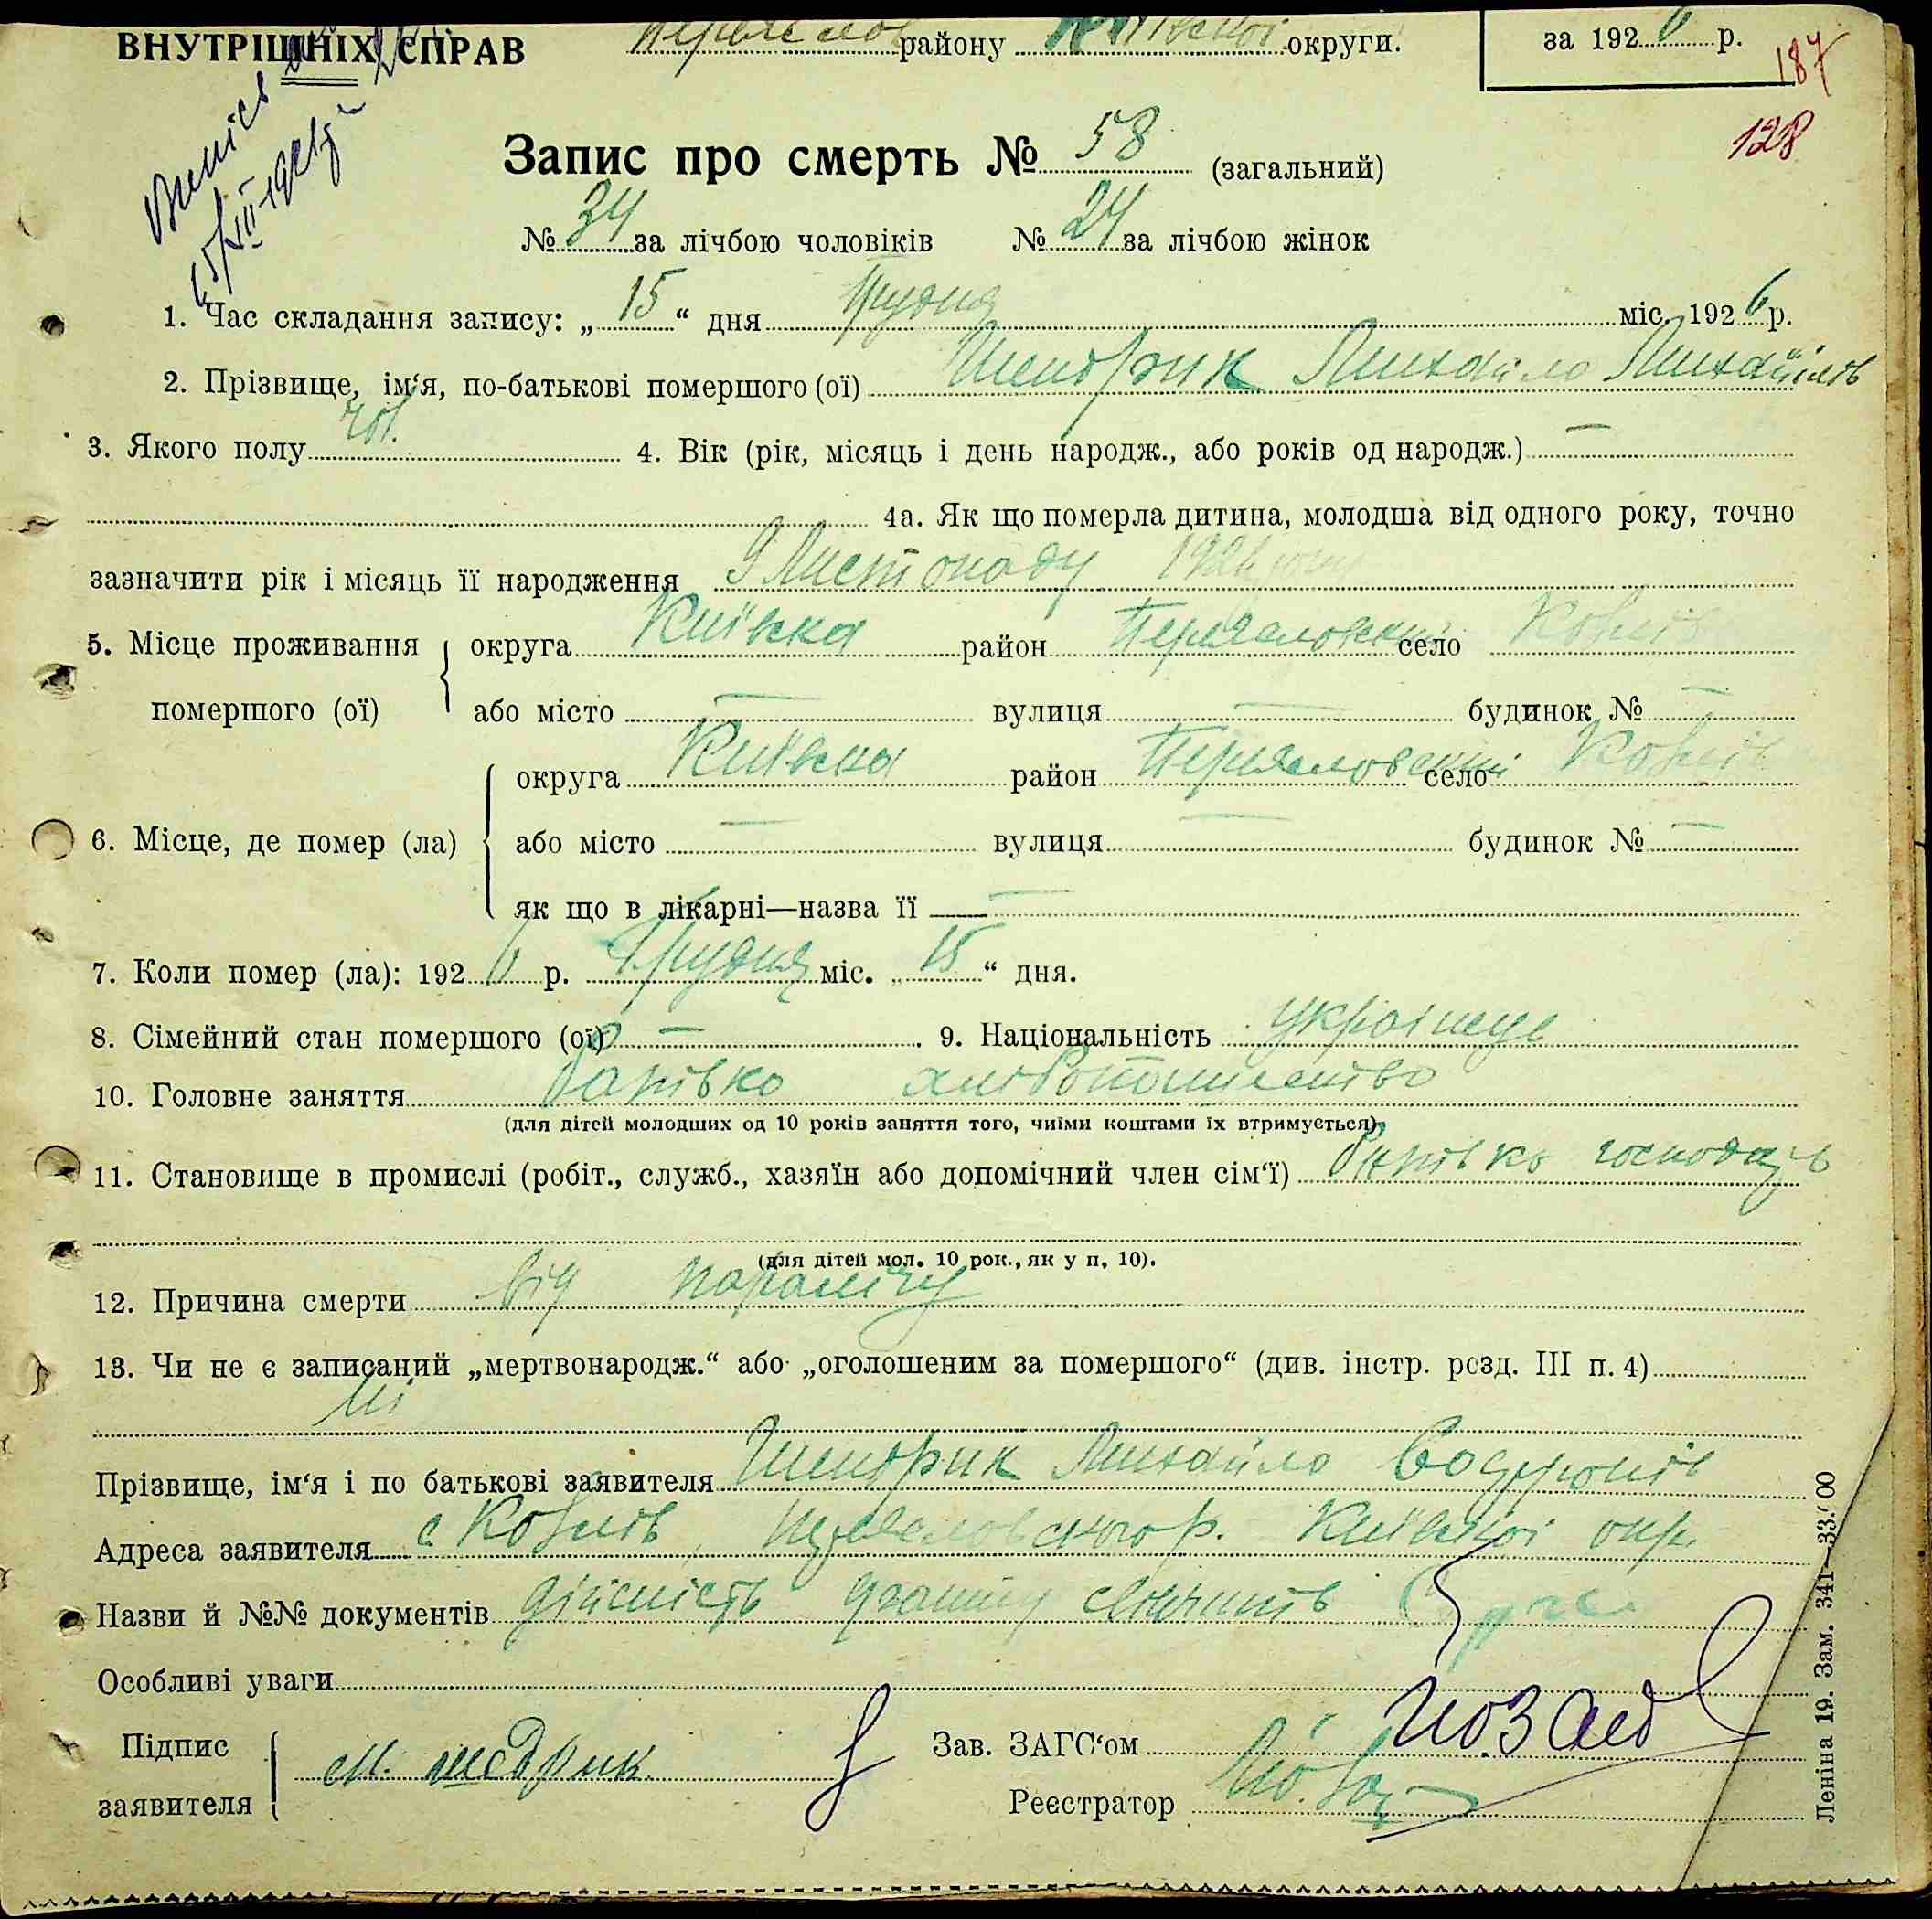 ВНУТРІШНІХ СПРАВ району Київської округи. за 1926 р.
187
128
Запис про смерть № 58 (загальний)
№ 34 за лічбою чоловіків № 24 за лічбою жінок
1. Час складання запису: „ 15 “ дня Грудня міс. 1926 р.
2. Прізвище, ім‘я, по-батькові помершого (ої) Шендрик Михайло Михайлів
3. Якого полу чол. 4. Вік (рік, місяць і день народж., або років од народж.) —
4а. Як що померла дитина, молодша від одного року, точно
зазначити рік і місяць її народження 9 Листопаду 1926 року
5. Місце проживання округа Київска район Переясловский село
помершого (ої) або місто — вулиця — будинок № —
округа Київска район Переясловский село
6. Місце, де помер (ла) або місто — вулиця — будинок № —
як що в лікарні—назва її —
7. Коли помер (ла): 1926 р. Грудня міс. „ 15 “ дня.
8. Сімейний стан помершого (ої) — . 9. Національність Українець
10. Головне заняття батько хліборобство
(для дітей молодших од 10 років заняття того, чиїми коштами їх втримується)
11. Становище в промислі (робіт., служб., хазяїн або допомічний член сім‘ї) батько господарь
(для дітей мол. 10 рок., як у п, 10).
12. Причина смерти від паралічу
13. Чи не є записаний „мертвонародж.“ або „оголошеним за помершого“ (див. інстр. розд. III п. 4)
Ні
Прізвище, ім‘я і по батькові заявителя Шендрик Михайло
Адреса заявителя с. Переясловского р. Київскої окр.
Назви й №№ документів дійсність
Особливі уваги
Підпис заявителя М. Шедрик Зав. ЗАГС‘ом
Реєстратор
Леніна 19. Зам. 341—33.000